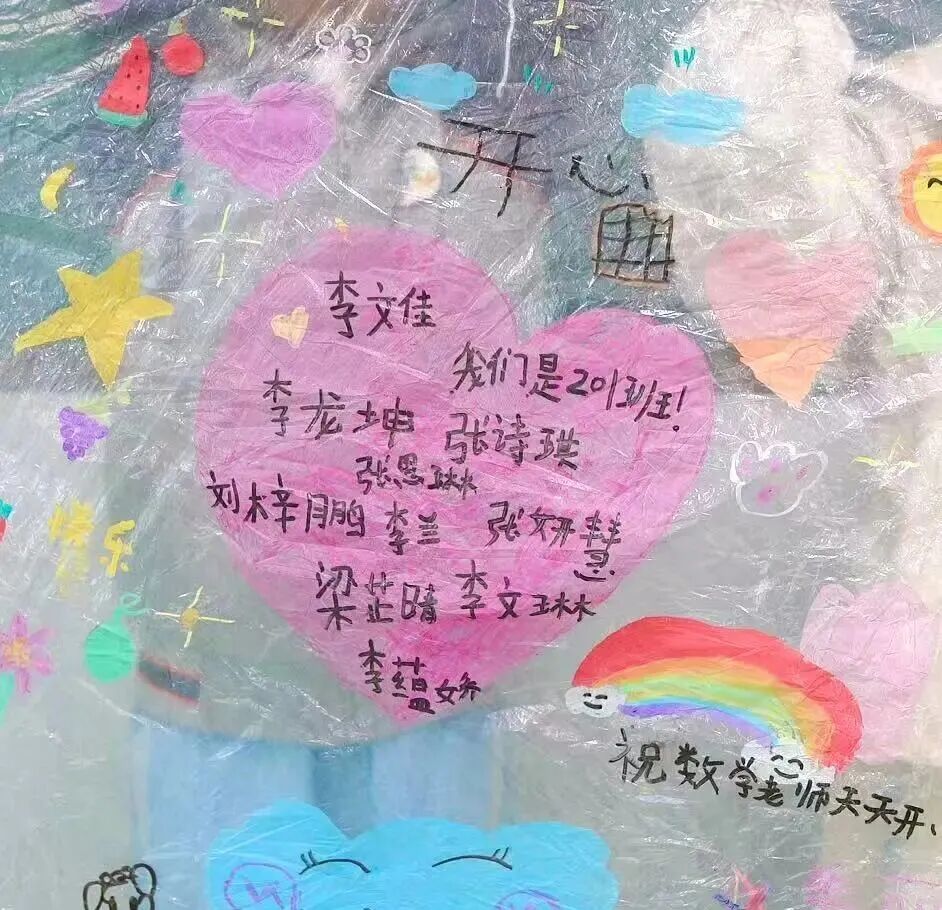 开心
李文佳
我们是201班!
李龙坤
张诗琪
张思琳
刘梓鹏
李兰
张妍慧
快乐
梁芷晴
李文琳
李蕴娇
祝数学老师天天开